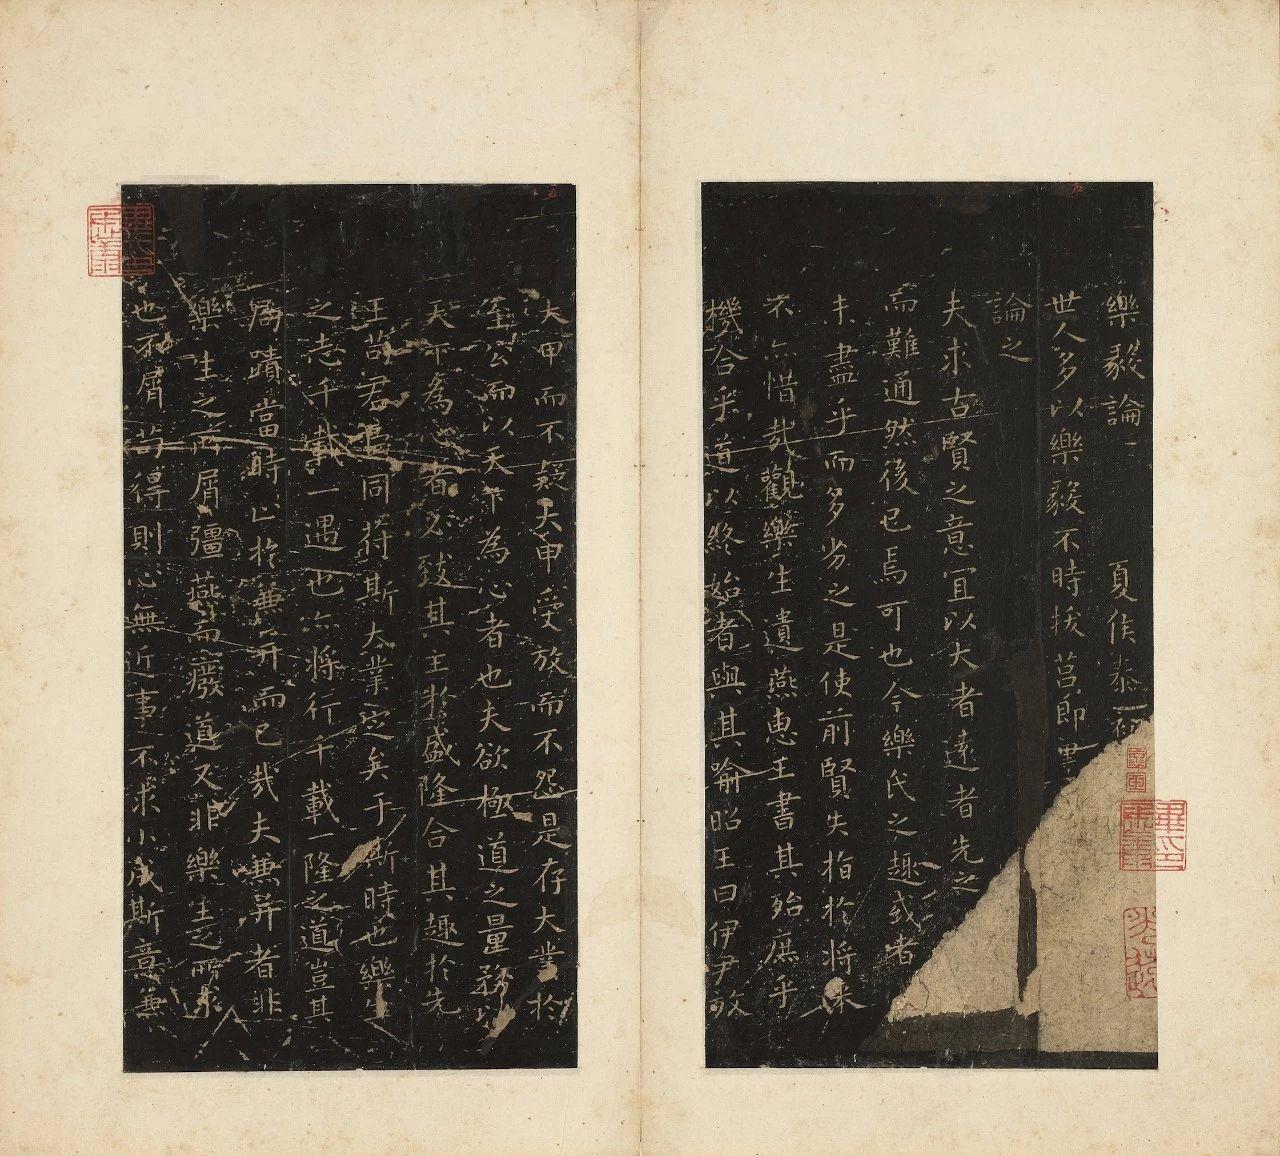 樂毅論 夏侯泰初
世人多以樂毅不時拔莒即
論之
夫求古賢之意宜以大者遠者先之
而難通然後已焉可也今樂氏之趣或者
未盡乎而多劣之是使前賢失指於將來
不亦惜哉觀樂生遺燕惠王書其殆庶乎
機合乎道以終始者與其喻昭王曰伊尹放
大甲而不疑大甲受放而不怨是存大業於
至公而以天下為心者也夫欲極道之量務以
天下為心者必致其主於盛隆合其趣於先
王苟君臣同符斯大業定矣于斯時也樂生
之志千載一遇也亦將行千載一隆之道豈其
局蹟當時止於兼并而已哉夫兼并者非
樂生之所屑彊燕而廢道又非樂生之所求
也不屑苟得則心無近事不求小成斯意兼